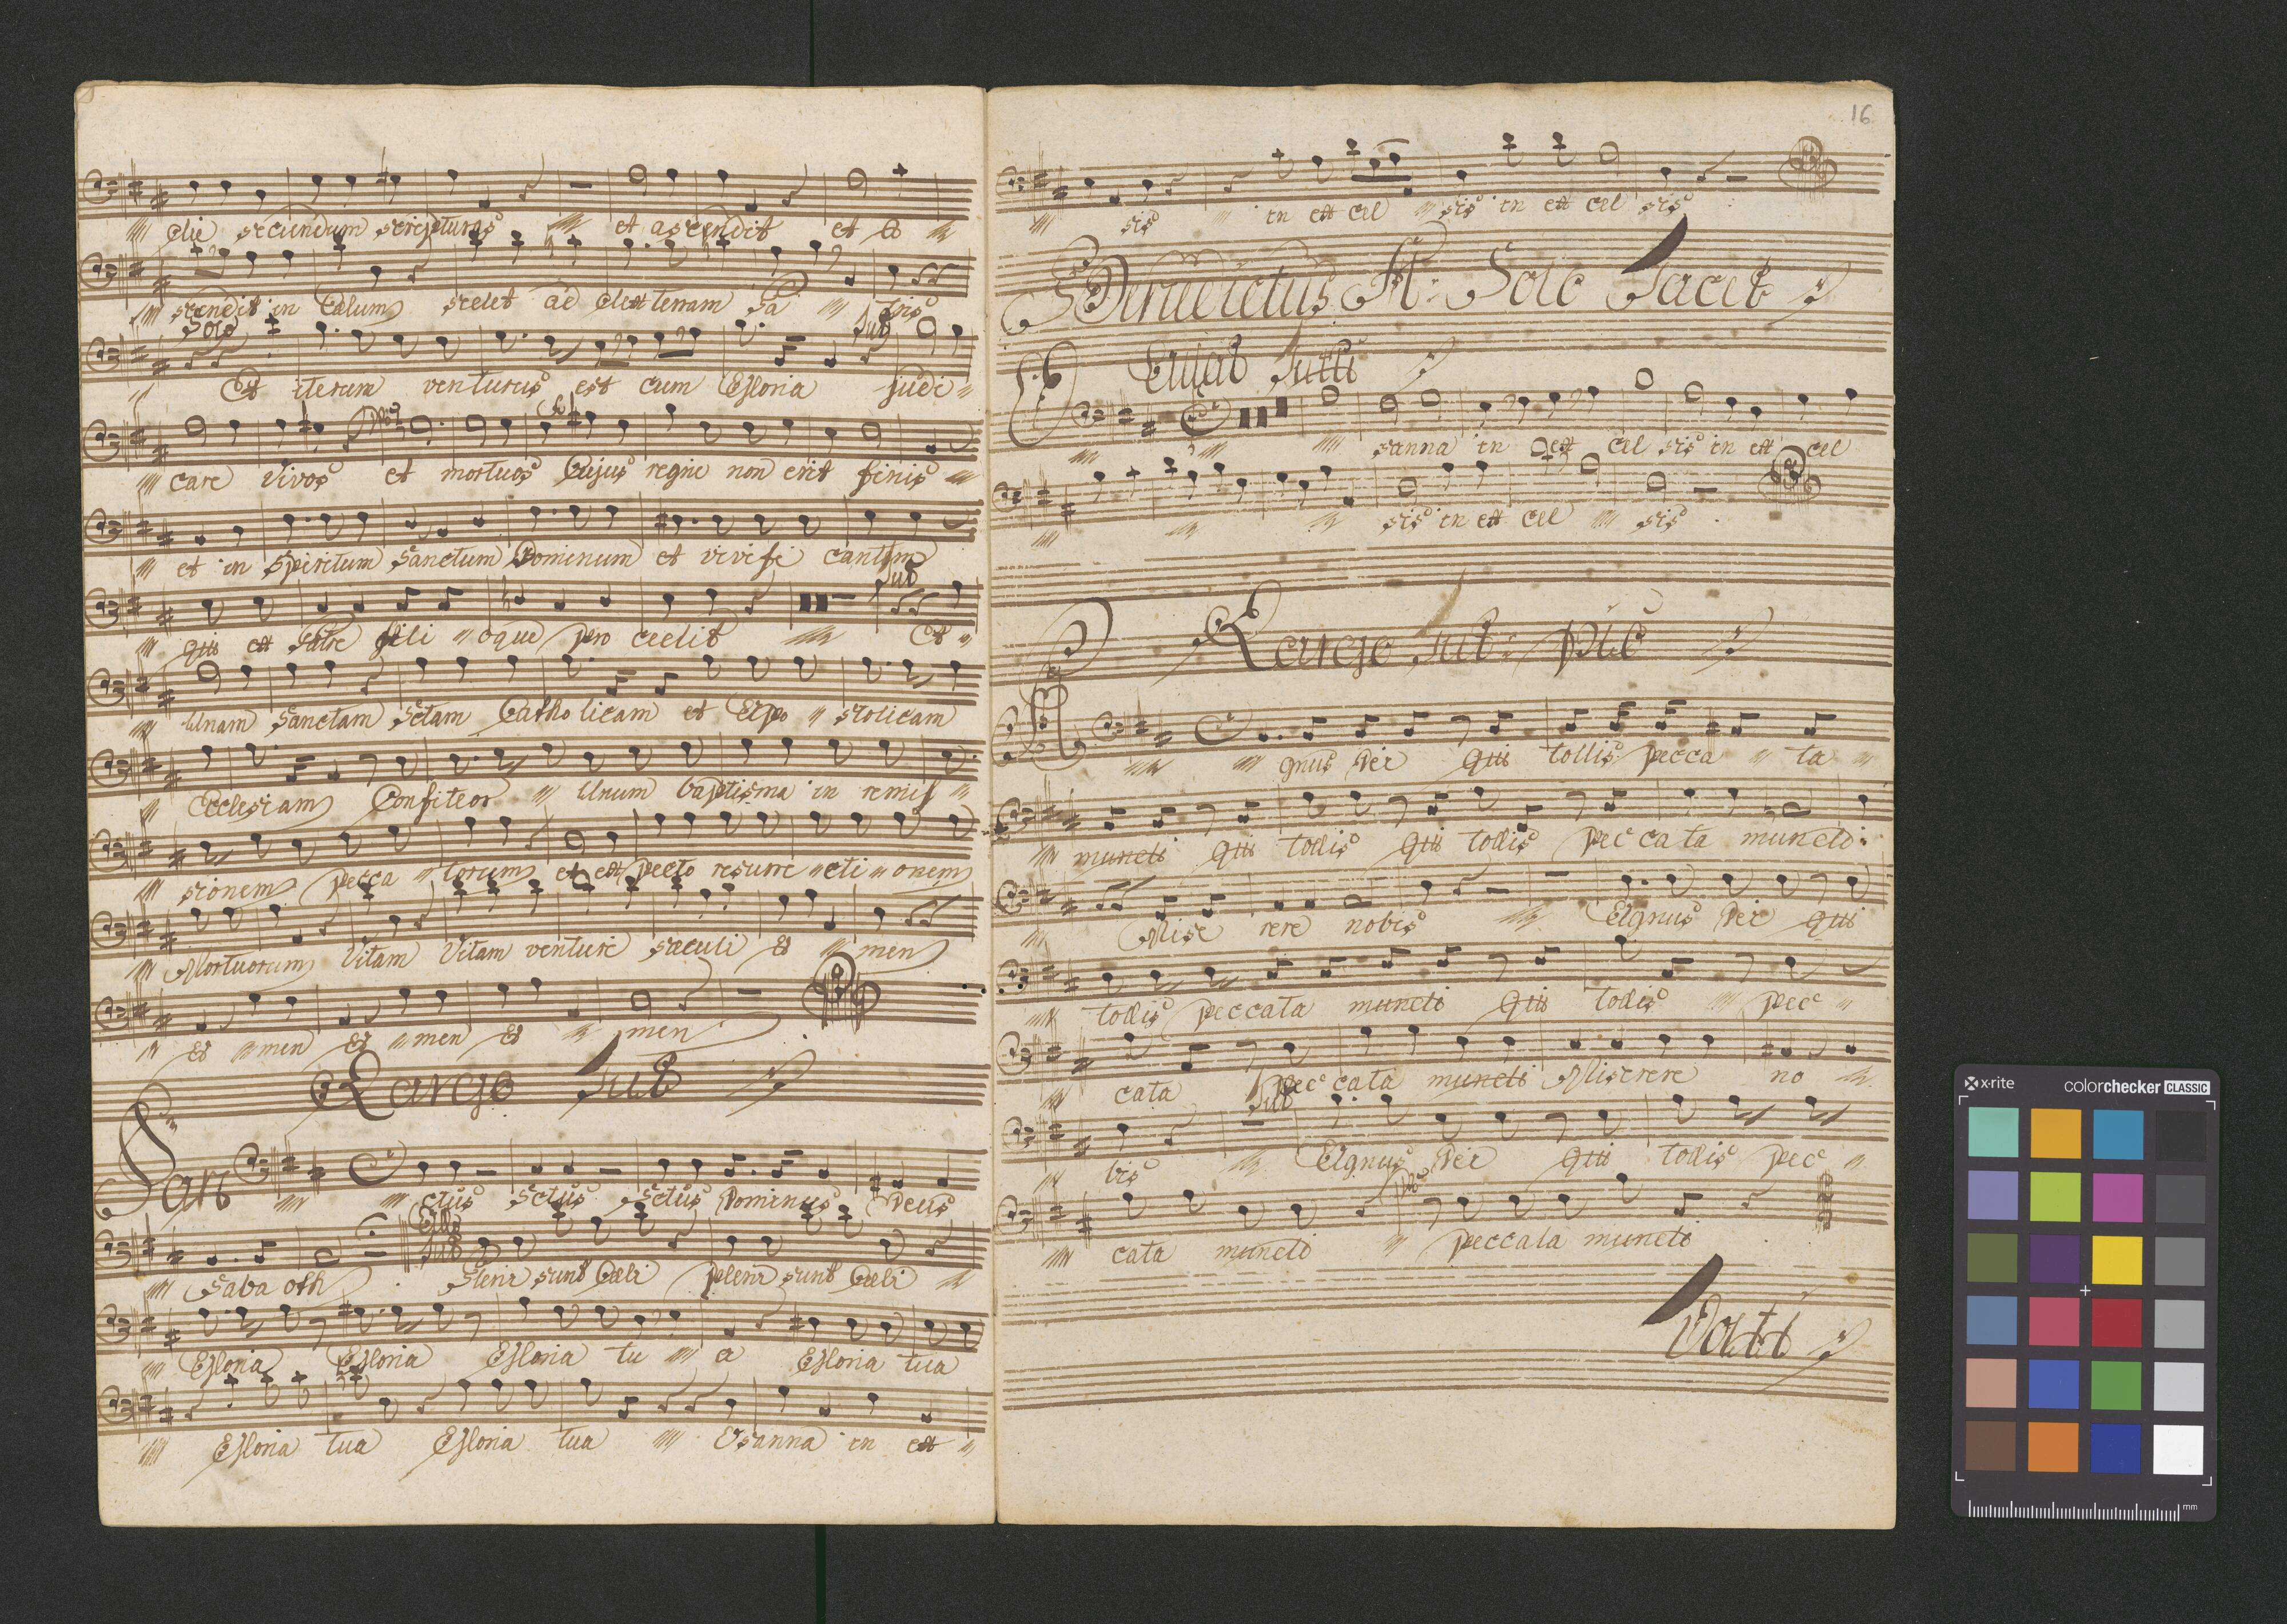 die secundum scripturas et ascendit et a
scendit in Cælum sedet ad dexteram Pa tris
Solo Tut
Et iterum venturus est cum Gloria judi
care vivos et mortuos Cujus regni non erit finis
et in Spiritum Sanctum Dominum et vivifi cantem
Tut
qui ex Patre fili oque pro cedit Et
Unam Sanctam Sctam Catho licam et Apo stolicam
Ecclesiam Confiteor Unum baptisma in remis
sionem pecca torum et ex pecto resurre cti onem
Mortuorum Vitam Vitam venturi sæculi A men
A men A men A men
Largo Tut
San ctus Sctus Sctus Dominus Deus
Allo Tut
Saba oth Pleni sunt Cæli pleni sunt Cæli
Gloria Gloria Gloria tu a Gloria tua
Gloria tua Gloria tua Osanna in ex
16
sis in ex cel sis in ex cel sis
Benedictus A: Solo Tacet
Allab Tutti
O sanna in ex cel sis in ex cel
sis in ex cel sis
Largo Tut: pia
A gnus Dei qui tollis pecca ta
mundi qui tollis qui tollis pec ca ta mundi
Mise rere nobis Agnus Dei qui
tollis peccata mundi qui tollis pec
cata pec cata mundi Miserere no
Tut
bis Agnus Dei qui tollis pec
cata mundi peccata mundi
Volti
x-rite colorchecker CLASSIC
mm